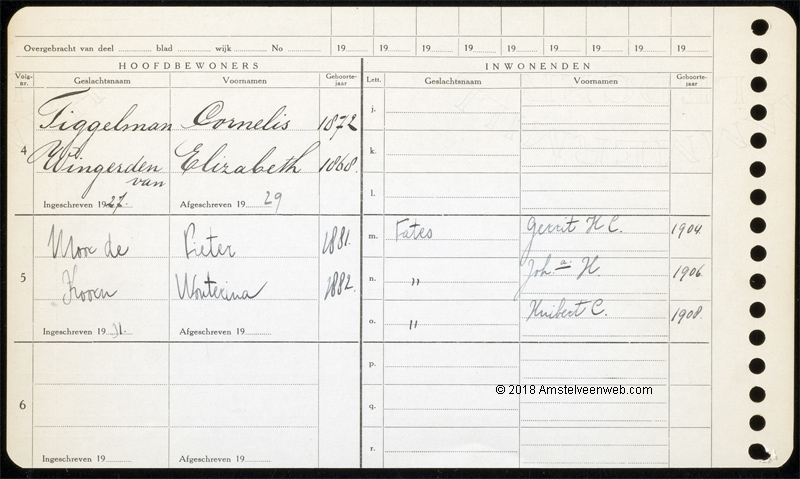 Overgebracht van deel blad wijk No 19 19 19 19 19 19 19 19 19
HOOFDBEWONERS INWONENDEN
Volg-nr. Geslachtsnaam Voornamen Geboorte-jaar Lett. Geslachtsnaam Voornamen Geboorte-jaar
4 Tiggelman Cornelis 1872
Wingerden van Elizabeth 1868.
Ingeschreven 1927. Afgeschreven 19 29
j.
k.
l.
5 Moor de Pieter 1881.
Wouterina 1882.
Ingeschreven 19 31. Afgeschreven 19
m. Fates Gerrit H C. 1904.
n. " Joh.a H. 1906.
o. " Huibert C. 1908.
6
Ingeschreven 19 Afgeschreven 19
p.
q.
r.
© 2018 Amstelveenweb.com